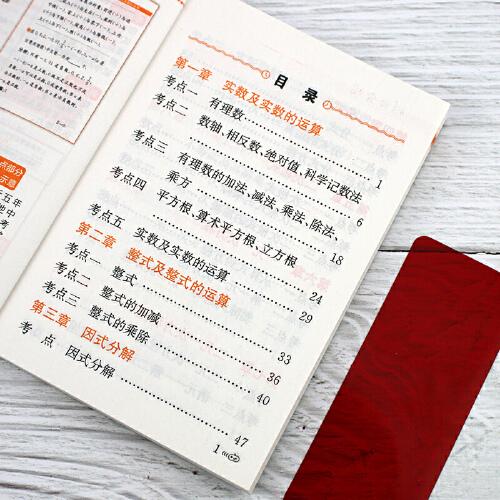 点部分
示意
五年
中
考
目 录
第一章 实数及实数的运算
考点一 有理数 …… 1
考点二 数轴、相反数、绝对值、科学记数法
…… 6
考点三 有理数的加法、减法、乘法、除法、
乘方 …… 18
考点四 平方根、算术平方根、立方根
…… 24
考点五 实数及实数的运算 …… 29
第二章 整式及整式的运算
考点一 整式 …… 33
考点二 整式的加减 …… 36
考点三 整式的乘除 …… 40
第三章 因式分解
考 点 因式分解 …… 47
1